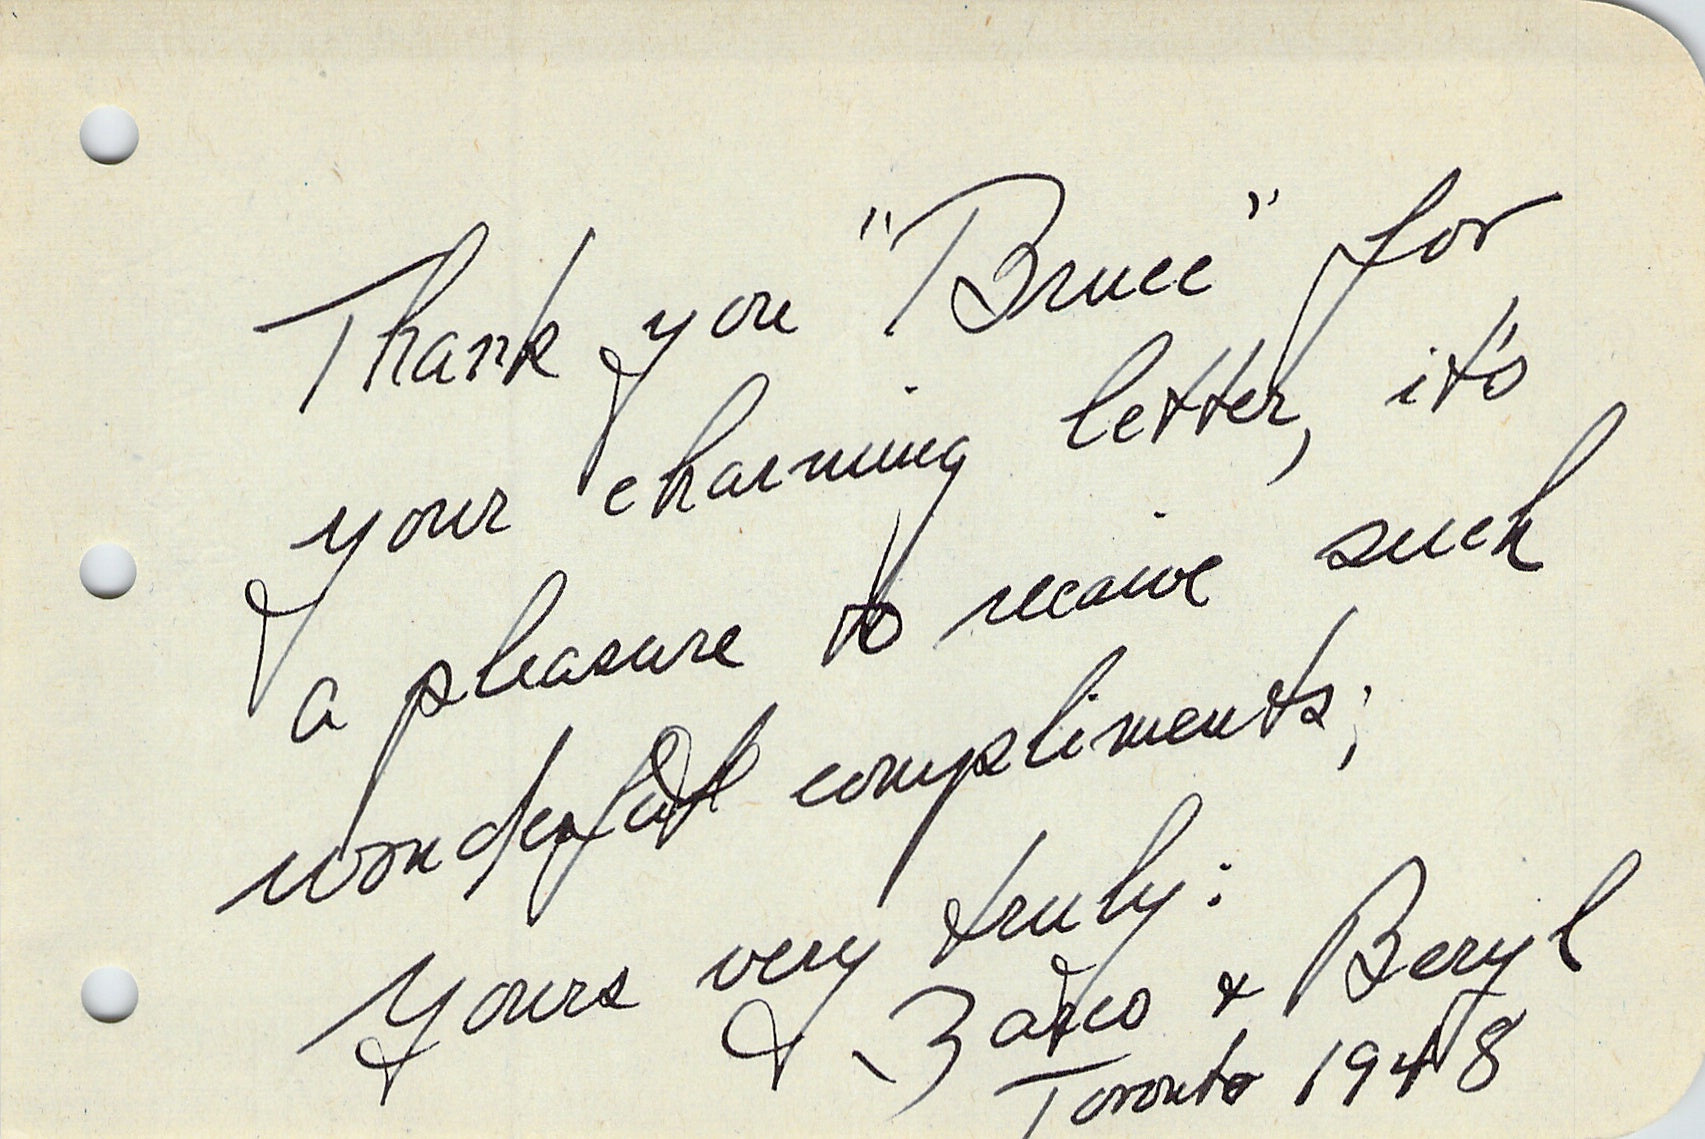 Thank you "Bruce" for
your charming letter, it's
a pleasure to recaive such
wonderful compliments;
Yours very truly:
& Beryl
Toronto 1948